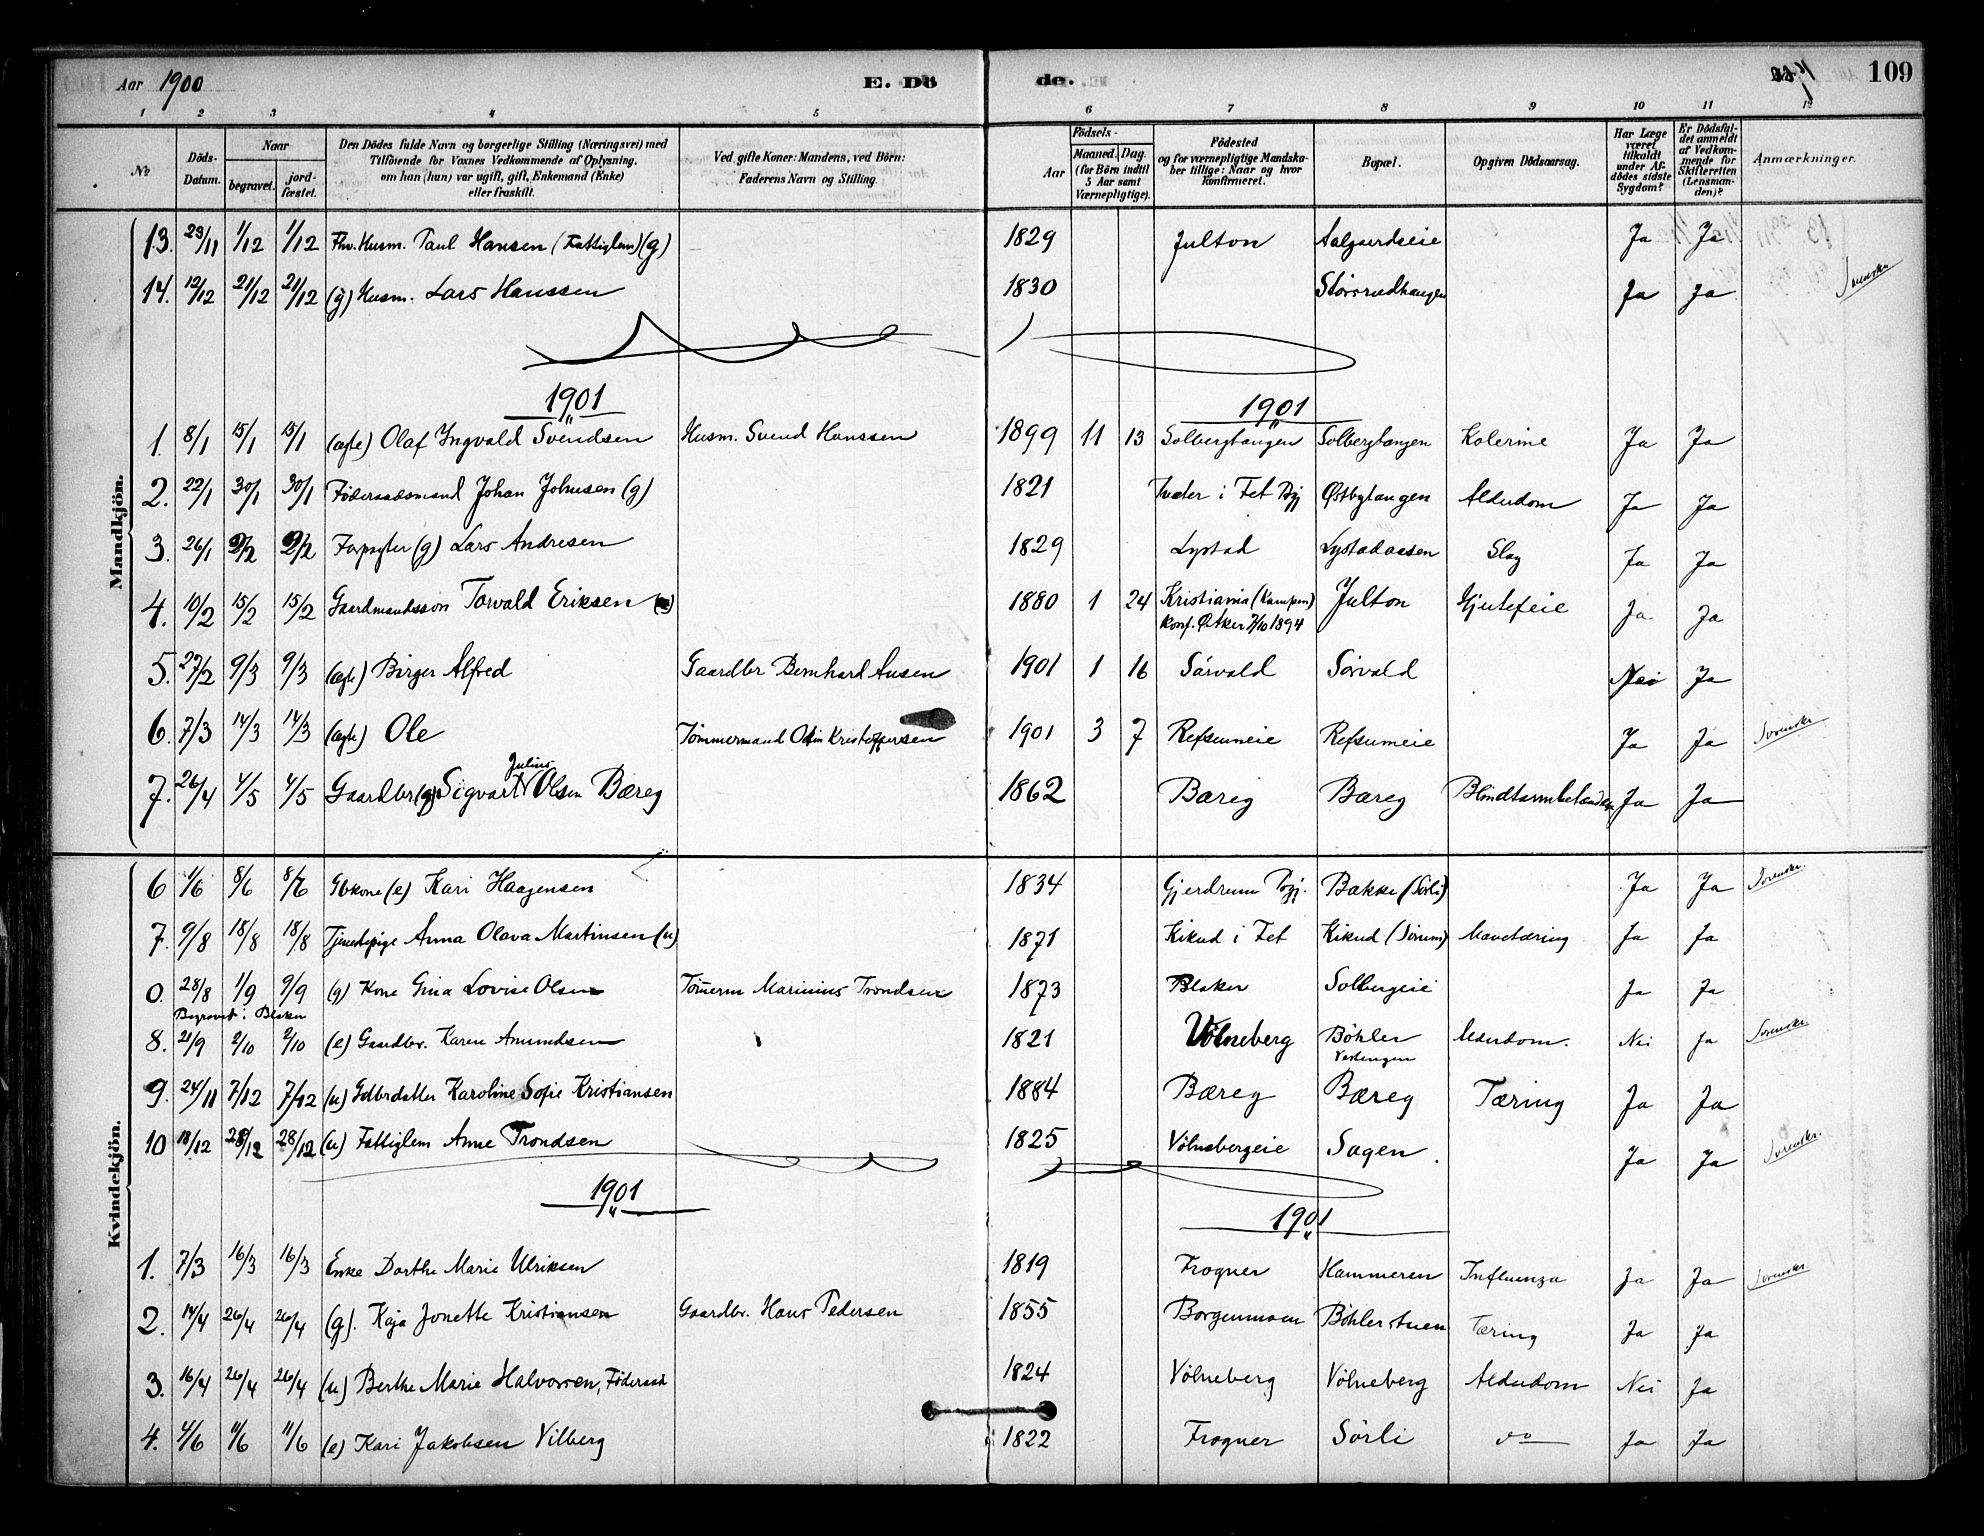 Aar 1900 E. Dö de. 109
1 2 3 4 5 6 7 8 9 10 11 12
No Döds-Datum. Naar begravet. jordfæstet. Den Dödes fulde Navn og borgerlige Stilling (Næringsvei) med Tilföiende for Voxnes Vedkommende af Oplysning, om han (hun) var ugift, gift, Enkemand (Enke) eller fraskilt. Ved gifte Koner: Mandens, ved Börn: Faderens Navn og Stilling. Födsels- Aar Maaned. Dag. (for Börn indtil 5 Aar samt Værnepligtige). Födested og for værnepligtige Mandskaber tillige: Naar og hvor konfirmeret. Bopæl. Opgiven Dödsaarsag. Har Læge været tilkaldt under Afdödes sidste Sygdom? Er Dödsfaldet anmeldt af Vedkommende for Skifteretten (Lensmanden)? Anmærkninger.
Mandkjön.
13. 23/11 1/12 1/12 Fhv. Husm. Paul Hansen (Fattiglem) (g) 1829 Julton Aalgaardseie Ja Ja
14. 12/12 21/12 21/12 (g) Husm. Lars Hanssen 1830 Störsrudhaugen Ja Ja Svenskr
1901 1901
1. 8/1 15/1 15/1 (ægte) Olaf Ingvald Svendsen Husm. Svend Hanssen 1899 11 13 Solbergtangen Solbergtangen Kolerine Ja Ja
2. 22/1 30/1 30/1 Föderaadsmand Johan Johnsen (g) 1821 i Fet Pgj Østbytangen Alderdom Ja Ja
3. 26/1 2/2 2/2 Forpagter (g) Lars Andresen 1829 Lystad Lystadaasen Slag Ja Ja
4. 10/2 15/2 15/2 Gaardmandssön Torvald Eriksen 1880 1 24 Kristiania (Kampen) Konf. Østker 7/10 1894 Julton Ja Ja
5. 27/2 9/3 9/3 (ægte) Birger Alfred Gaardbr Bernhard Ausen 1901 1 16 Sörvald Sörvald Nei Ja
6. 7/3 14/3 14/3 (ægte) Ole Tömmermand Odin Kristoffersen 1901 3 7 Refsumeie Refsumeie Ja Ja Svenskr
7. 26/4 4/5 4/5 Gaardbr (g) Sigvart Julius Olsen Bæreg 1862 Bæreg Bæreg Blindtarmbetændelse Ja Ja
Kvindekjön.
6 1/6 8/6 8/6 Gbkone (e) Kari Haagensen 1834 Gjerdrum Pgj. Bakke (Sörli) Ja Ja Svenskr.
7. 9/8 18/8 18/8 Tjenestepige Anna Olava Martinsen (u) 1871 Kikud i Fet Kikud (Sörum) Mavetæring Ja Ja
0. 28/8 1/9 9/9 (g) Kone Gina Lovise Olsen Tömerm Marinius Trondsen 1873 Blaker Solbergeie Ja Ja
Begravet i Blaker
8. 21/9 2/10 2/10 (e) Gaardbr. Karen Amundsen 1821 Völneberg Böhler Vestengen Alderdom. Nei Ja Svenskr.
9. 24/11 7/12 7/12 (u) Gdbrdatter Karoline Sofie Kristiansen 1884 Bæreg Bæreg Tæring Ja Ja
10 18/12 28/12 28/12 (u) Fattiglem Anne Trondsen 1825 Völnebergeie Sagen. Ja Ja Svenskr.
1901 1901
1. 7/3 16/3 16/3 Enke Dorthe Marie Ulriksen 1819 Frogner Hammeren Influenza Ja Ja Svenskr
2. 14/4 26/4 26/4 (g). Kaja Jonette Kristiansen Gaardbr. Hans Pedersen 1855 Borgenmoen Böhlerstuen Tæring Ja Ja
3. 16/4 26/4 26/4 (u) Berthe Marie Halvorsen, Föderaad 1824 Völneberg Völneberg Alderdom Nei Ja
4. 4/6 11/6 11/6 (e) Kari Jakobsen Vilberg 1822 Frogner Sörli do Ja Ja